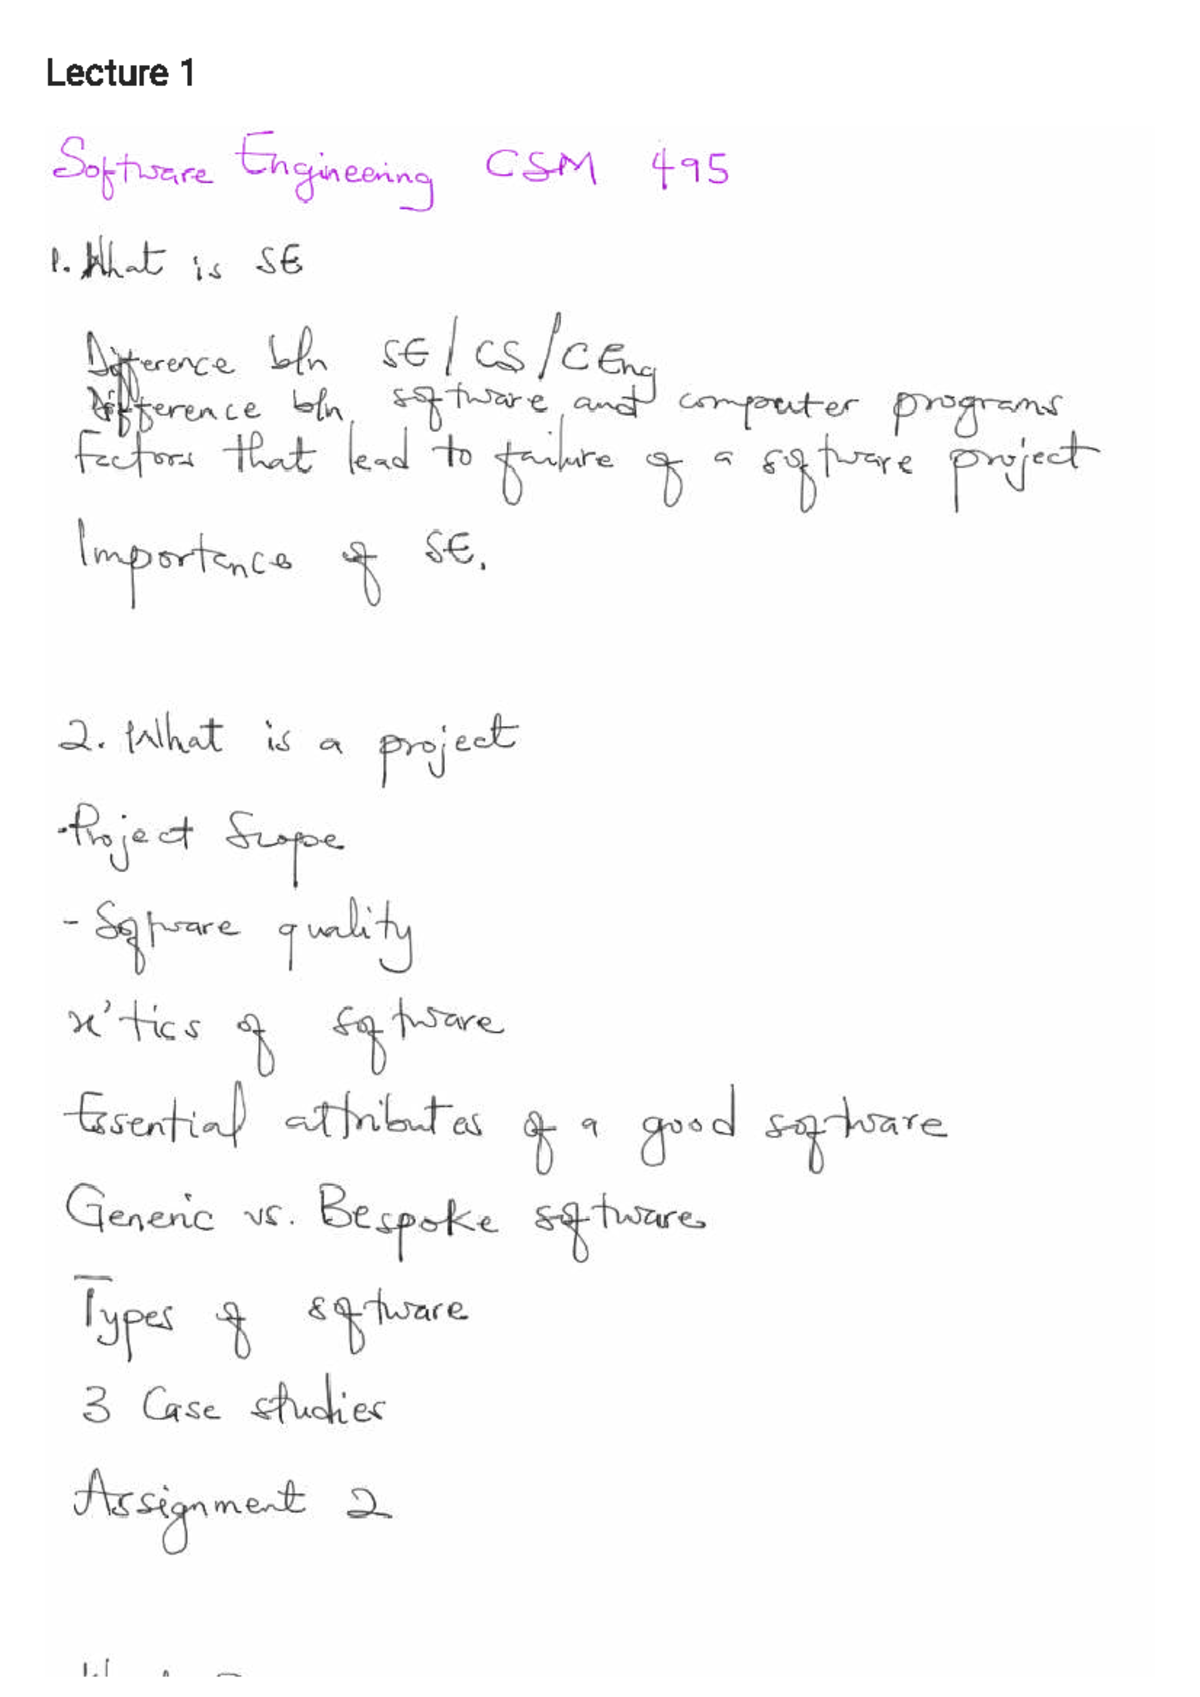 Lecture 1
Software Engineering CSM 495
1. What is SE
Difference btn SE/CS/CEng
Difference btn software and computer programs
Factors that lead to failure of a software project
Importance of SE.
2. What is a project
-Project Scope
- Software quality
x'tics of software
Essential attributes of a good software
Generic vs. Bespoke software
Types of software
3 Case studies
Assignment 2